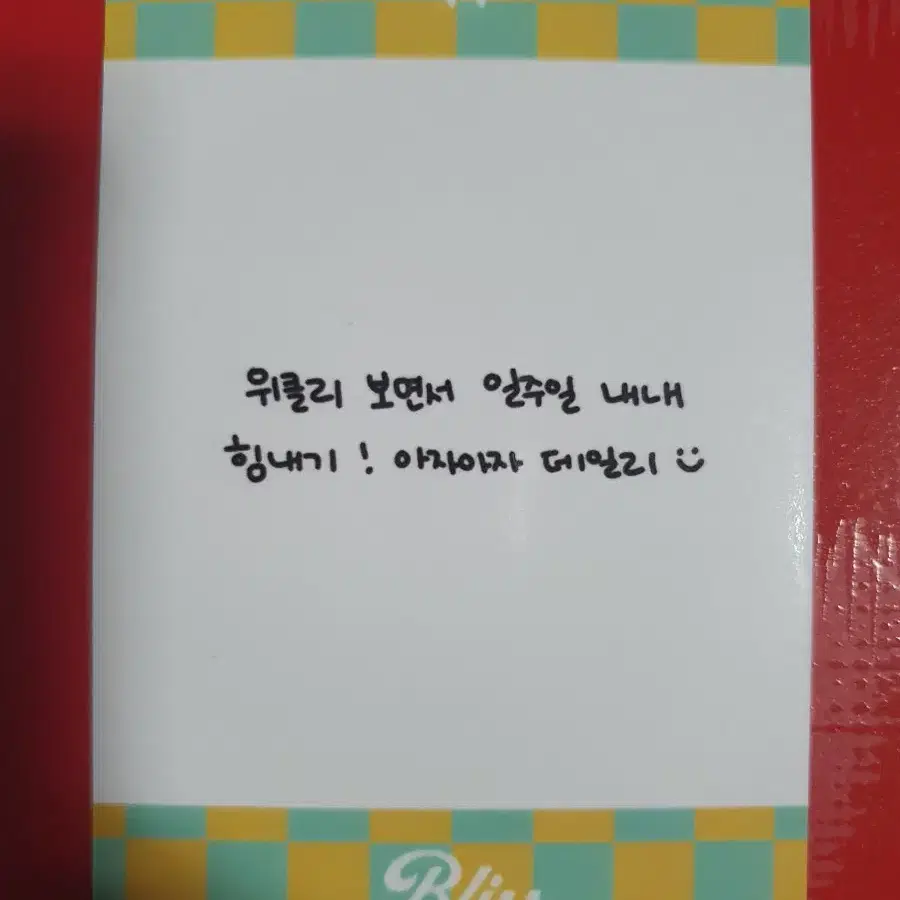 위클리 보면서 일주일 내내
힘내기! 아자아자 데일리